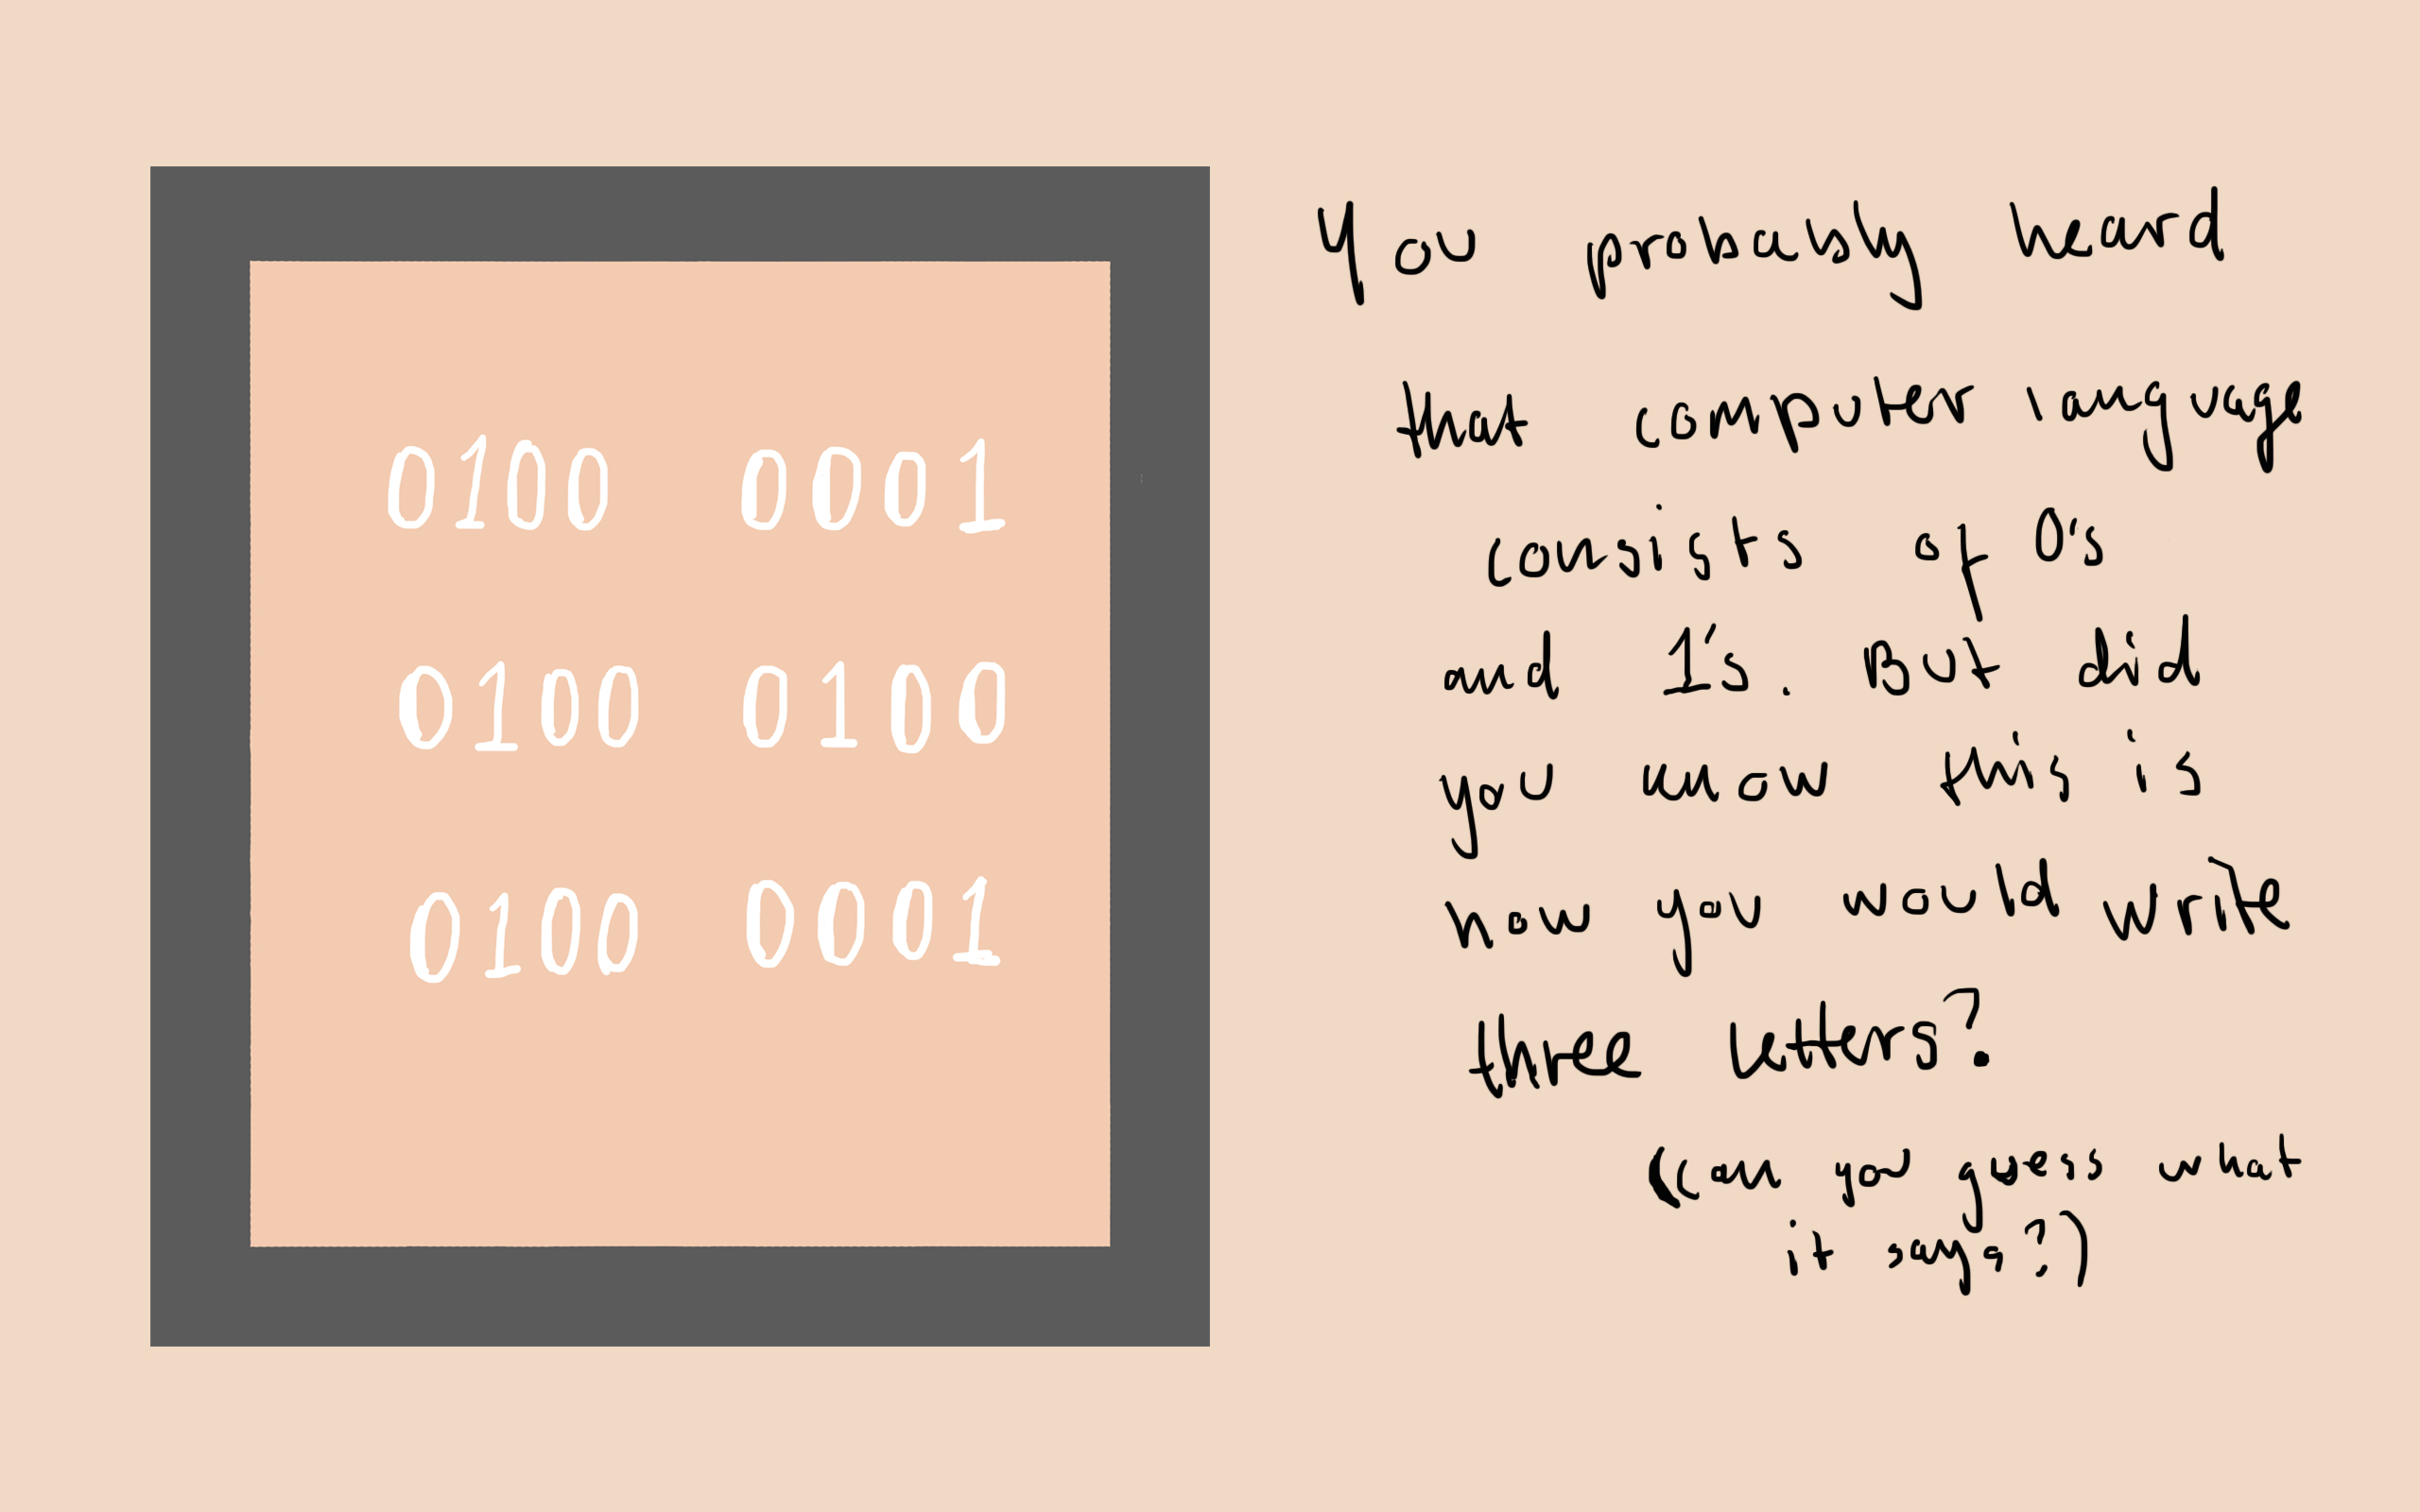 0100 0001
0100 0100
0100 0001
You probably heard
that computer language
consists of 0's
and 1's. But did
you know this is
how you would write
three letters?
(can you guess what
it says?)